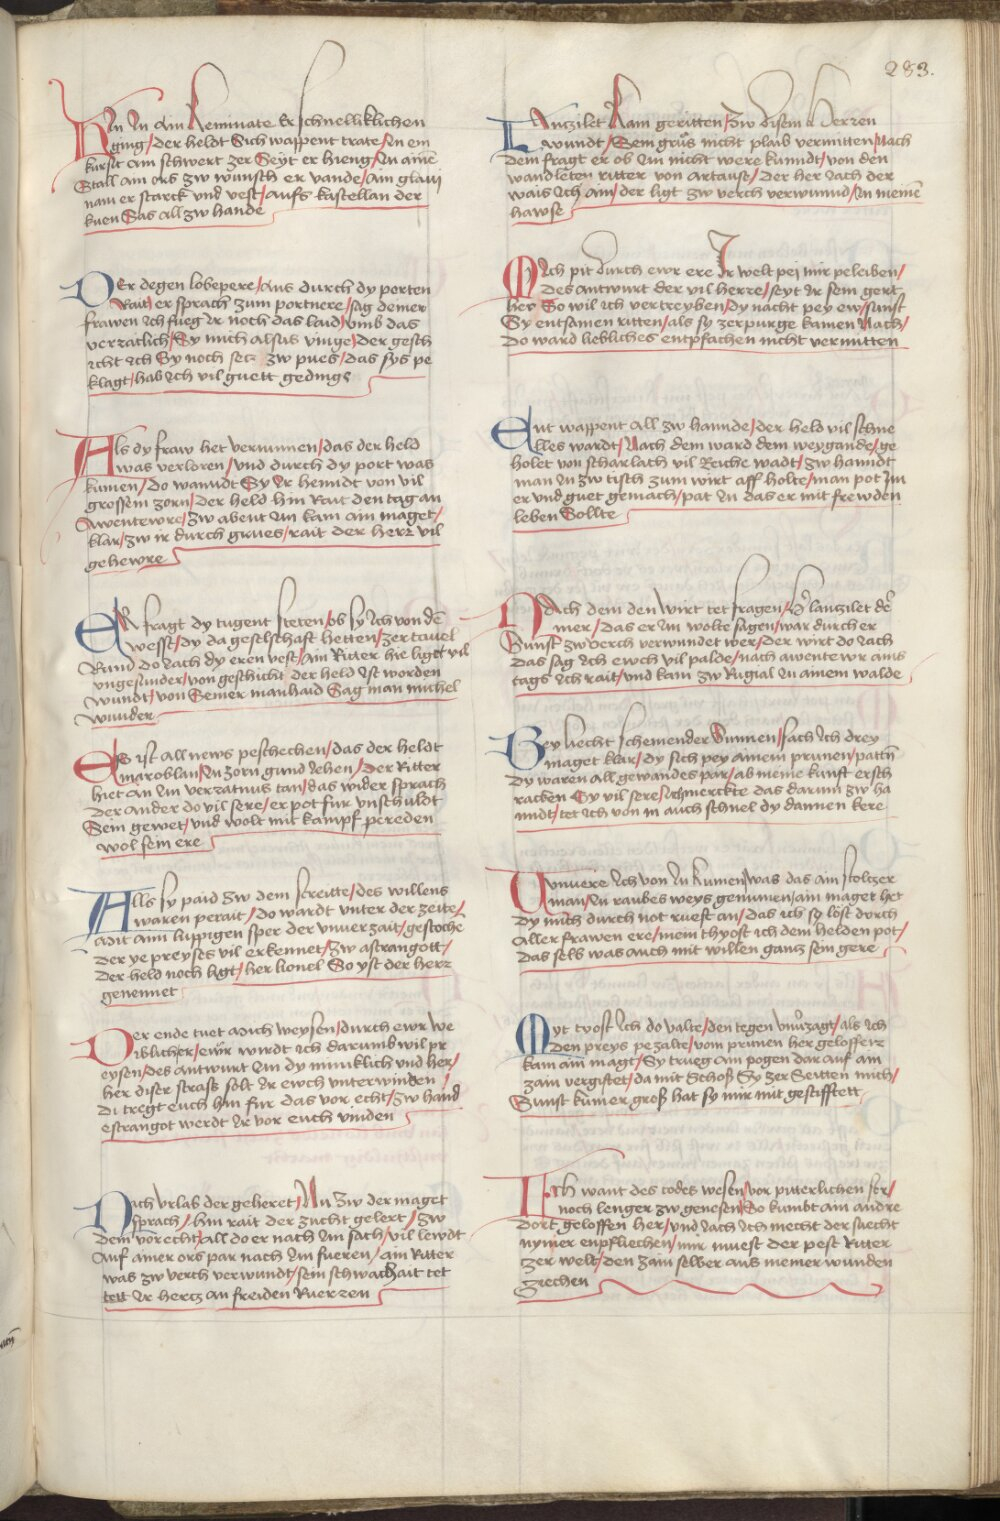 283.
In in ain keminate Er schnelliklichen
ging/der heldt Sich wappent trate/in ein
kursit ain schwert zer Seyt er hieng/in aine
Stall ain ors zw wunsch er vande/ain glaui
nam er starck vnd vest/aufs kastellan der
kuen Sas all zw hande
Der degen lobepere/Aus durch dy porten
Rait/er sprach zum portnere/sag deiner
frawen ich fueg ir noch das laid/vmb das
verzatlich/Sy mich alsus vinge/der gesch
icht ich Sy noch sec zw pues/das sys pe
klagt/hab ich vil guett gedinge
Als dy fraw het vernumen/das der held
was verloren/vnd durch dy port was
kumen/do wanndt Sy ir henndt von vil
grossem zorn/der held hin Rait den tag an
Awentewre/zw abent im kam ain maget/
klar/zw ir durch grues/rait der herr vil
gehewre
Er fragt dy tugent steten/ob sy ich von de
wesst/dy da geselschaft hetten/zer tauel
Rund do iach dy eren vest/ain Ritter hie liget vil
vngesunder/von geschicht der held ist worden
wundt/von Seiner manhaid Sag man michel
wunder
Es ist all news peschechen/das der heldt
maroblan/in zorn gund iehen/der Ritter
hiet an im verzatnus tan/das wider sprach
der ander do vil sere/er pot fur vnschuldt
Sein gewet/vnd wolt mit kampf pereden
wol sein ere
Alls sy paid zw dem streitte/des willens
waren perait/do wardt vnter der zeite/
adit ainn luppigen sper der vnuerzait/gestoche
der ye preyses vil erkennet/zw astrangott/
der held noch ligt/her lionel So yst der herr
genennet
Der ende tuet mich weysen/durch ewr we
iblicher/ewr wirdt ich darumb wil pr
eysen/des antwurt im dy minniklich vnd her/
her diser strass solt ir ewch vnterwinden
Di tregt euch hin fur das vor echt/zw hand
estrangot werdt ir vor euch vinden
Nach vrlab der geheret/In zw der maget
sprach/hin rait der zucht gelert/zw
dem vorecht/all do er nach im sach/vil lewdt
Auf ainer ors par nach im fueren/ain Ritter
was zw verch verwundt/sein schwachait tet
tett ir hertz an freiden Ruerren
Lanczilet kam geritten/zw disem herren
wundt/Sein grus nicht plaib vermitten/Nach
dem fragt er ob im nicht were kundt/von den
wandleten ritter von artaust/der her iach der
wais ich ain/der ligt zw verch verwunnd/in meine
hawse
Mich pit durch ewr ere Ir welt pei mir peleiben/
des antwurt der vil herre/seyt ir sein gert
her So wil ich vertreyben/dy nacht pey ew/sunst
Sy entsamen ritten/als sy zer purge kamen Nach/
do ward liebliches entpfachen nicht vermitten
Ent wappent all zw hannde/der held vil schne
lles wardt/Nach dem ward dem weygande/ge
holet von scharlach vil Reiche wadt/zw hanndt
man in zw tisch zum wirt aff holte/man pot im
er vnd guet gemach/pat in das er mit frewden
leben Sollte
Nach dem den wirt tet fragen/Her lanzilet de
mer/das er im wolte sagen/war durch er
Sunst zw verch verwundet wer/der wirt do iach
das sag ich ewch vil palde/nach awentewr ains
tags ich rait/vnd kam zw Rugial in ainem walde
Bey liecht scheinender Sunnen/sach ich drey
maget klar/dy sich pey ainem prunen/patn
dy waren all gewandes par/ab meine kunft ersch
racken Sy vil sere/ich merckte das darum zw ha
nndt/tet ich von in auch schnel dy dannen kere
Vnuere ich von in kumen/was das ain stoltzer
man/in raubes weys genumen/ain maget het
dy mich durch not rueft an/das ich sy lost durch
Aller frawen ere/mein thyost ich dem helden pot/
das selb was auch mit willen gantz sein gere
Myt tyost ich do valte/den tegen vnuzagt/als ich
den preys pezalte/vom prunen her geloffen
kam ain magt/Sy trueg ain pogen dar auf ain
zain vergiftet/da mit Schos Sy zer Seitten mich/
Sunst kumer gros hat sy mir mit gestifftett
Ich want des todes wesen/vor pitterlichen ser/
noch lenger zw genesen/So kumbt ain andre
dort geloffen her/vnd iach ich mecht der suecht
nymer enpfliechen/mir muest der pest Ritter
zer welt/den zain selber aus meiner wunden
ziechen